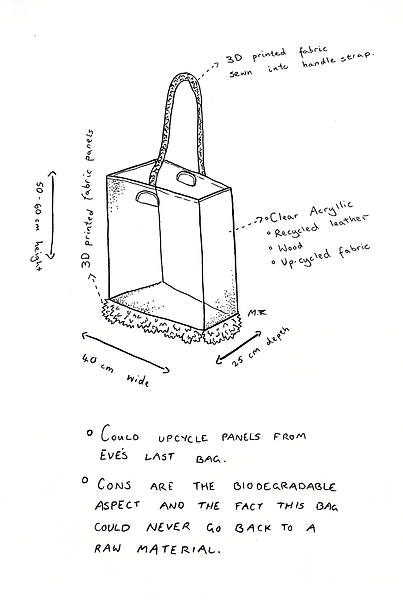 3D printed fabric
sewn into handle strap.
3D printed fabric panels
50-60 cm height
Clear Acryllic
Recycled leather
Wood
Up-cycled fabric
M.K
40 cm wide
25 cm depth
COULD UPCYCLE PANELS FROM
EVE'S LAST BAG.
CONS ARE THE BIODEGRADABLE
ASPECT AND THE FACT THIS BAG
COULD NEVER GO BACK TO A
RAW MATERIAL.